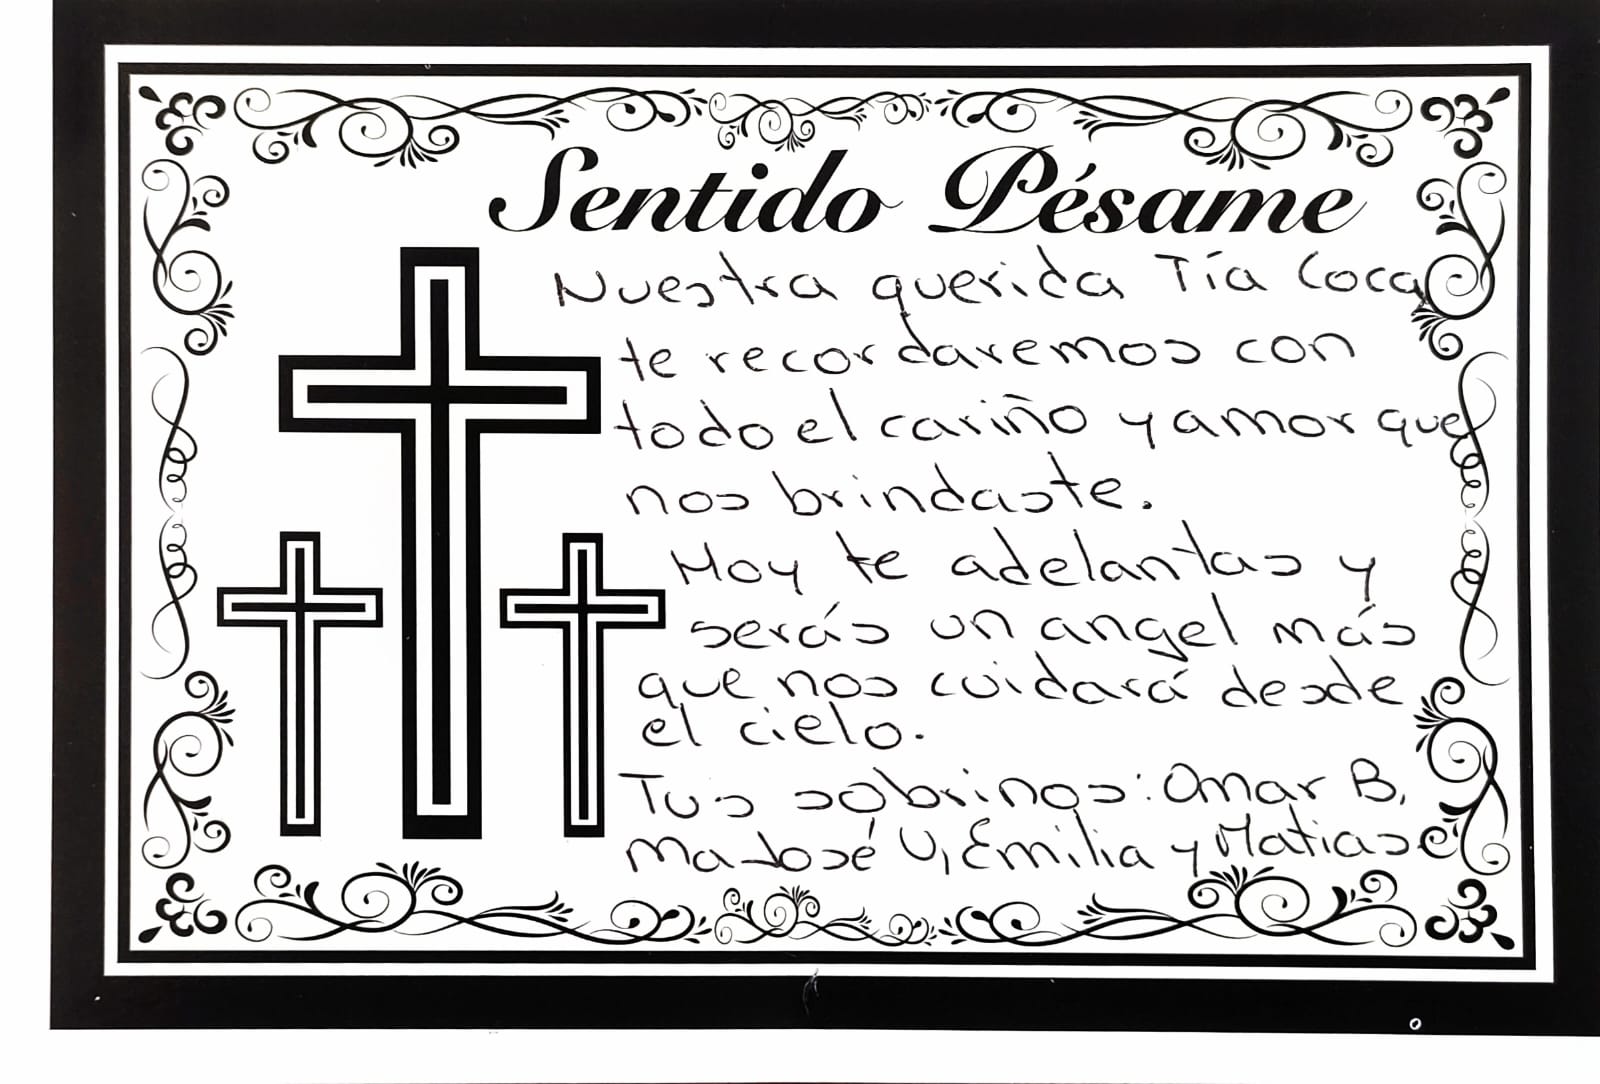 Sentido Pésame
Nuestra querida Tía Coca
te recordaremos con
todo el cariño y amor que
nos brindaste.
Hoy te adelantas y
serás un angel más
que nos cuidará desde
el cielo.
Tus sobrinos: Omar B,
Ma José V, Emilia y Matias